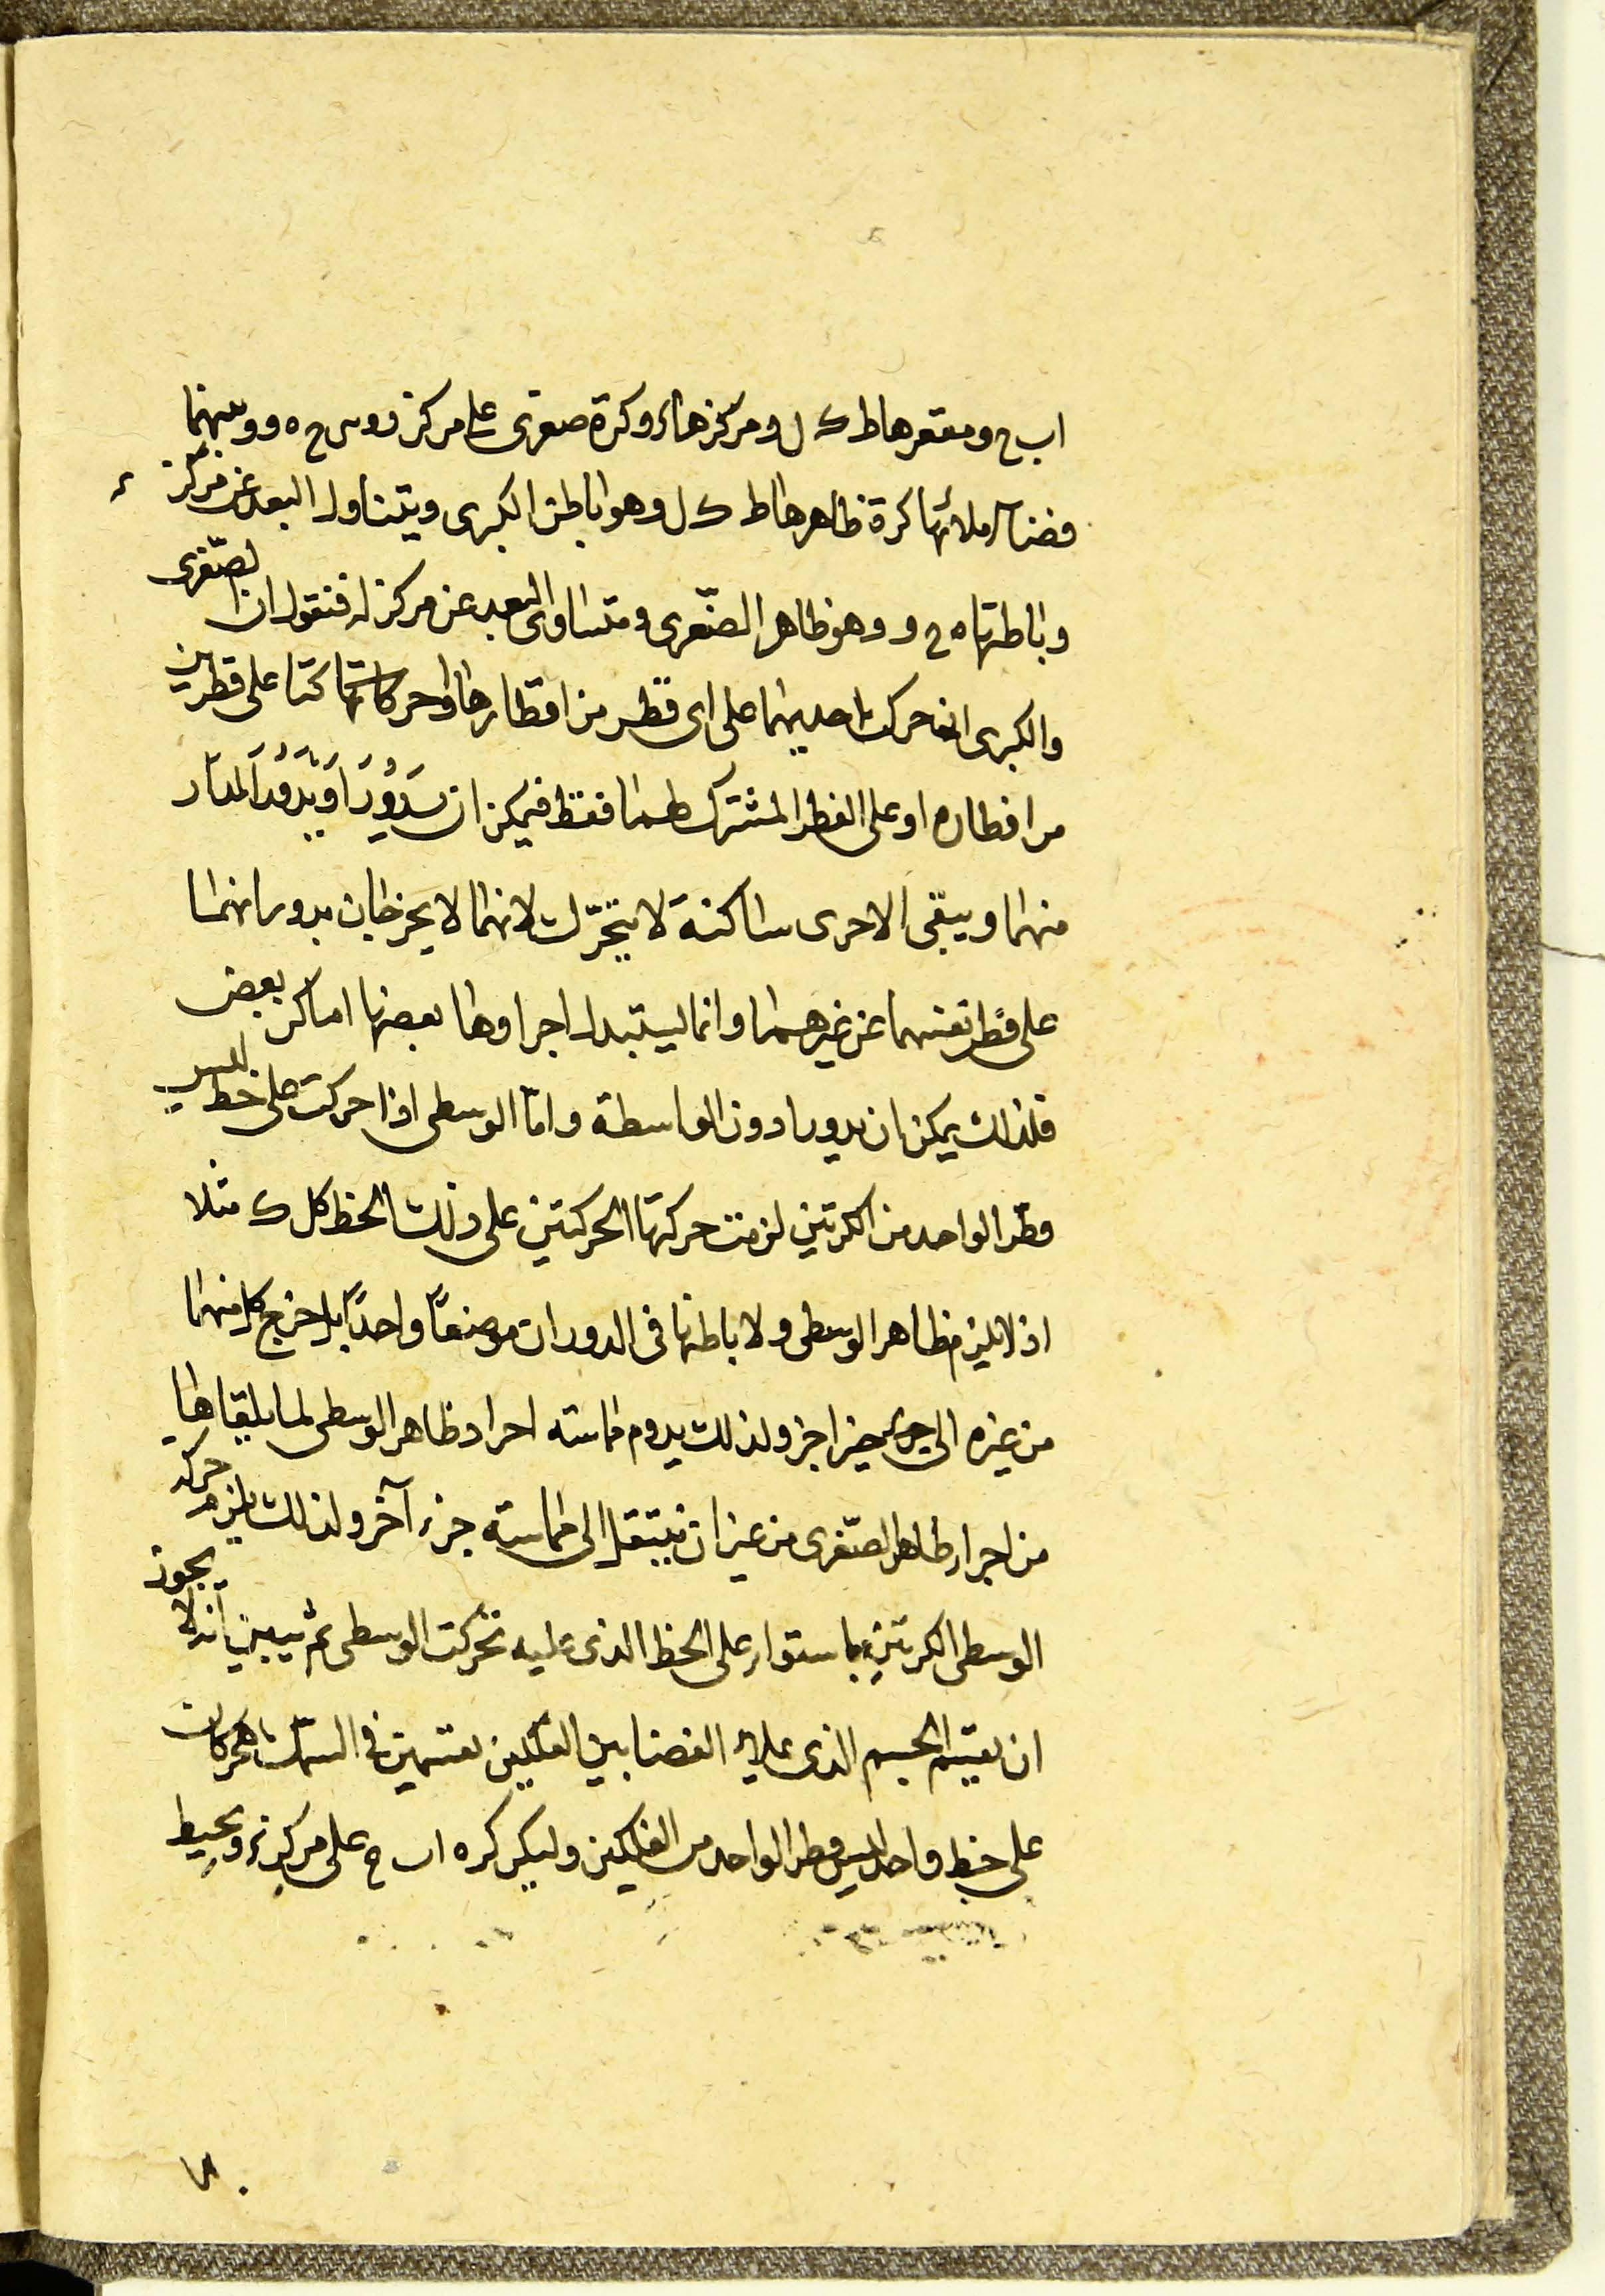 اب ح ومقعرها ط ك ل ومركزها ء وكرة صغرى على مركز ز وس ح ه و وبينهما
فضاء ملأتها كرة ظاهرها ط ك ل وهو باطن الكبرى ويتناول البعد عن مركز ء
وباطنها ه ح و وهو ظاهر الصغرى ومتساوى البعد عن مركز له فنقول ان الصغرى
والكبرى اذا حركت احديهما على اى قطر من اقطارها او حركتا على قطرين
من اقطاره او على القطر المشترك لهما فقط فيمكن ان يدورا ويدور المدار
منهما ويبقى الاخرى ساكنة لا يتحرك لانهما لا يخرجان بدورانهما
على قطر نفسهما عن غيرهما وانما يستبدل اجزاوها بعضها اماكن بعض
فلذلك يمكن ان يدورا دون الواسطة واما الوسطى اذا حركت على خط ليس
قطر الواحد من الكرتين لزمت حركتها الحركتين على ذلك الخط كل ك مثلا
اذ لا يلزم ظاهر الوسطى ولا باطنها فى الدوران موضعاً واحداً بل خرج كل منهما
من غيره الى حيز اخر ولذلك يدوم مماسته اجزاء ظاهر الوسطى لما يلقاها
من اجزاء ظاهر الصغرى من غير ان ينتقل الى مماسته جزء آخر ولذلك يلزم حركة
الوسطى الكرتين باستواء على الخط الذى عليه تحركت الوسطى ثم يتبين انه لا يجوز
ان يقسم الجسم الذى يملأ الفضا بين الفلكين بقسمين فى السمك يتحركان
على خط واحد ليس قطر الواحد من الفلكين وليكن كره اب ح على مركز ء ويحيط